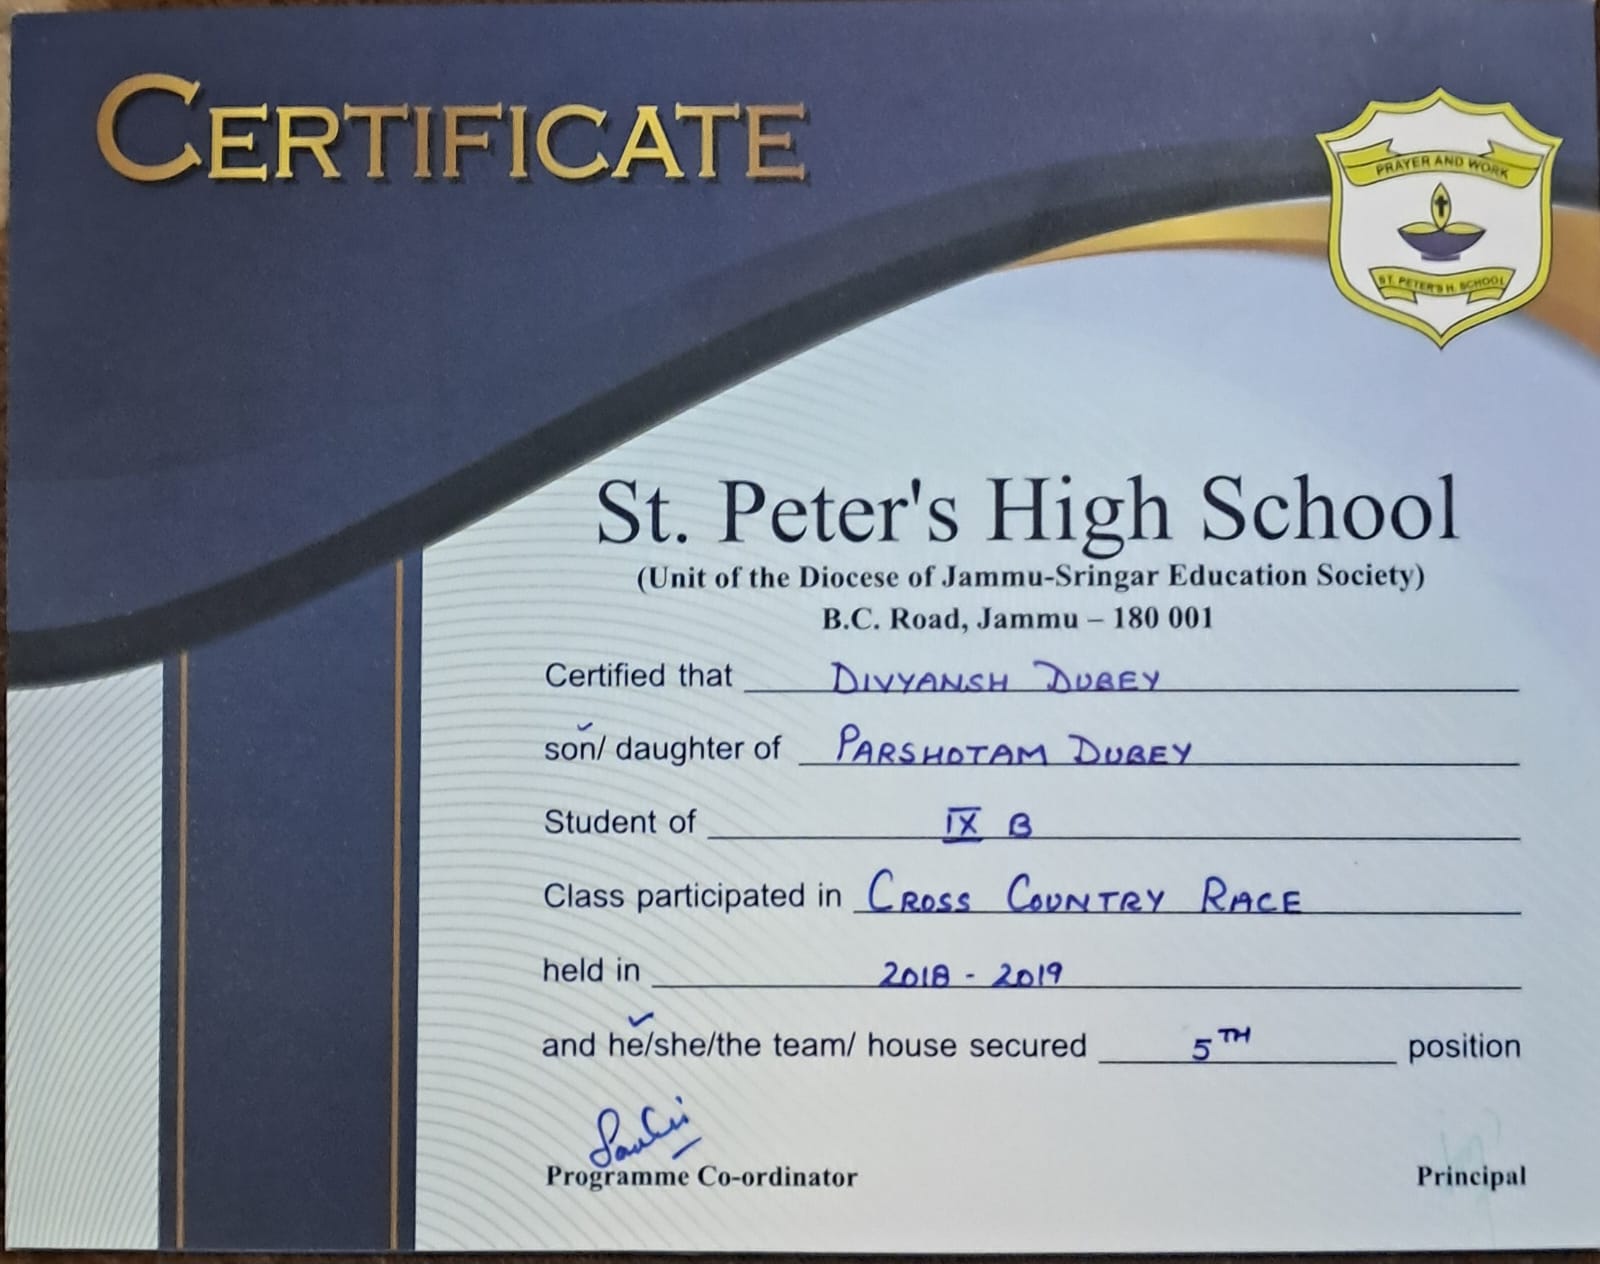 CERTIFICATE
PRAYER AND WORK
ST. PETER'S H. SCHOOL
St. Peter's High School
(Unit of the Diocese of Jammu-Sringar Education Society)
B.C. Road, Jammu – 180 001
Certified that DIVYANSH DUBEY
son/ daughter of PARSHOTAM DUBEY
Student of IX B
Class participated in CROSS COUNTRY RACE
held in 2018 - 2019
and he/she/the team/ house secured 5TH position
Programme Co-ordinator
Principal